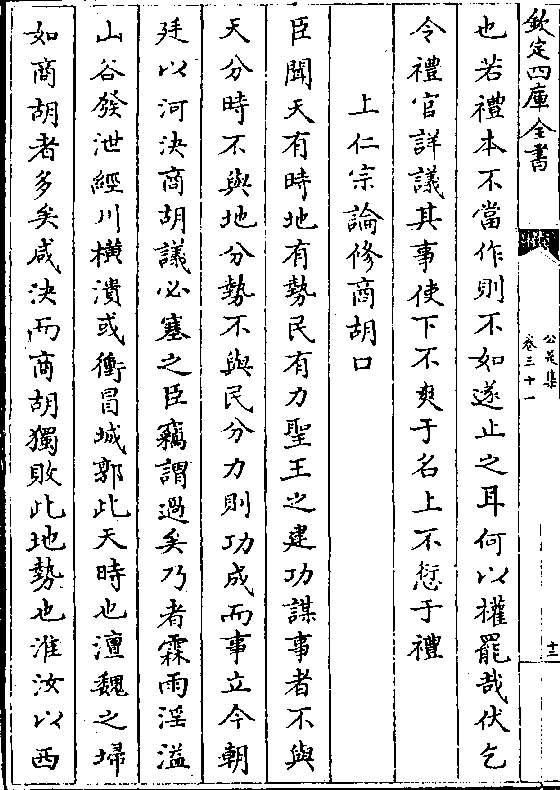 欽定四庫全書
公是集
卷三十一
十三
也若禮本不當作則不如遂止之耳何以權罷哉伏乞
令禮官詳議其事使下不爽于名上不愆于禮
上仁宗論修商胡口
臣聞天有時地有勢民有力聖王之建功謀事者不與
天分時不與地分勢不與民分力則功成而事立今朝
廷以河決商胡議必塞之臣竊謂過矣乃者霖雨淫溢
山谷發泄經川橫潰或衝冒城郭此天時也澶魏之埽
如商胡者多矣咸決而商胡獨敗此地勢也淮汝以西